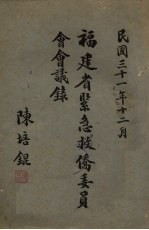 民國三十一年十二月
福建省緊急救僑委員
會會議錄
陳培錕